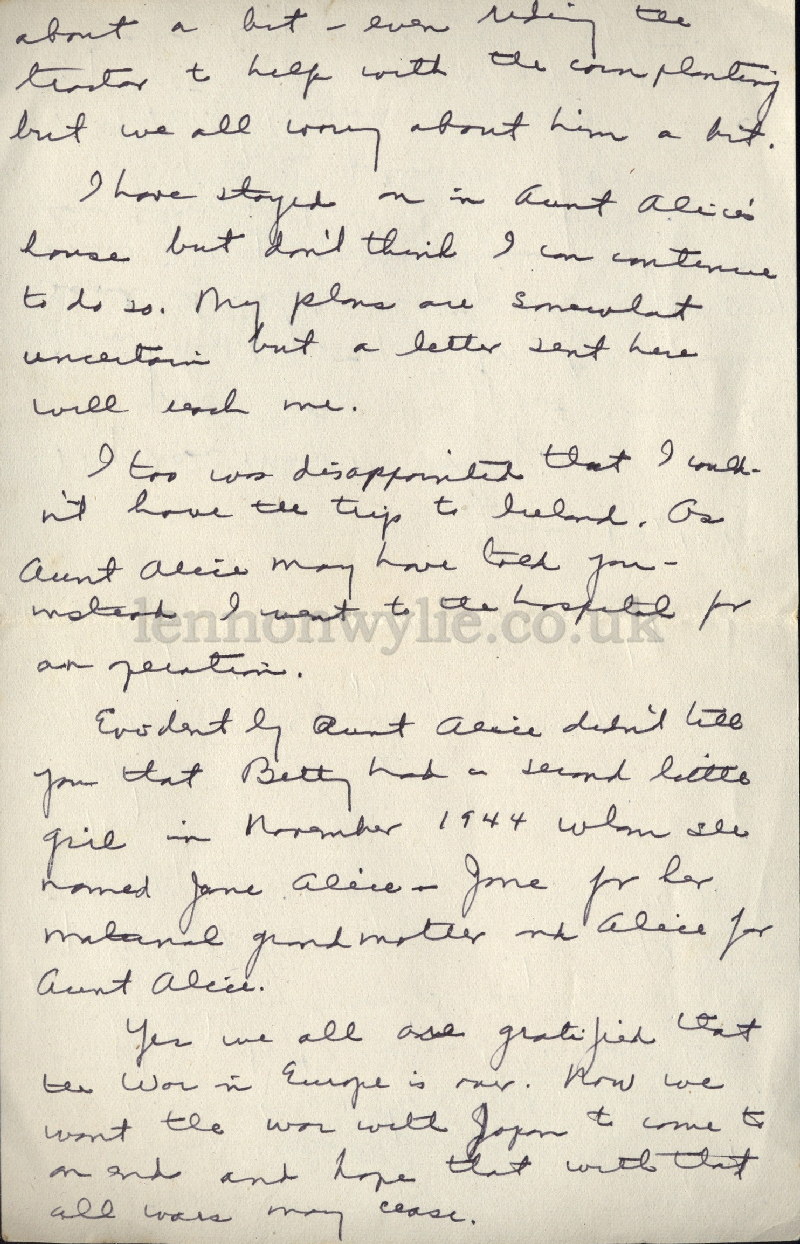 about a bit – even riding the
tractor to help with the corn planting
but we all worry about him a bit.
I have stayed on in Aunt Alice's
house but don't think I can continue
to do so. My plans are somewhat
uncertain but a letter sent here
will reach me.
I too was disappointed that I could-
n't have the trip to Ireland. As
Aunt Alice may have told you –
instead I went to the hospital for
an operation.
Evidently Aunt Alice didn't tell
you that Betty had a second little
girl in November 1944 whom she
named Jane Alice – Jane for her
maternal grandmother and Alice for
Aunt Alice.
Yes we all are gratified that
the War in Europe is over. Now we
want the war with Japan to come to
an end and hope that with that
all wars may cease.
lennonwylie.co.uk